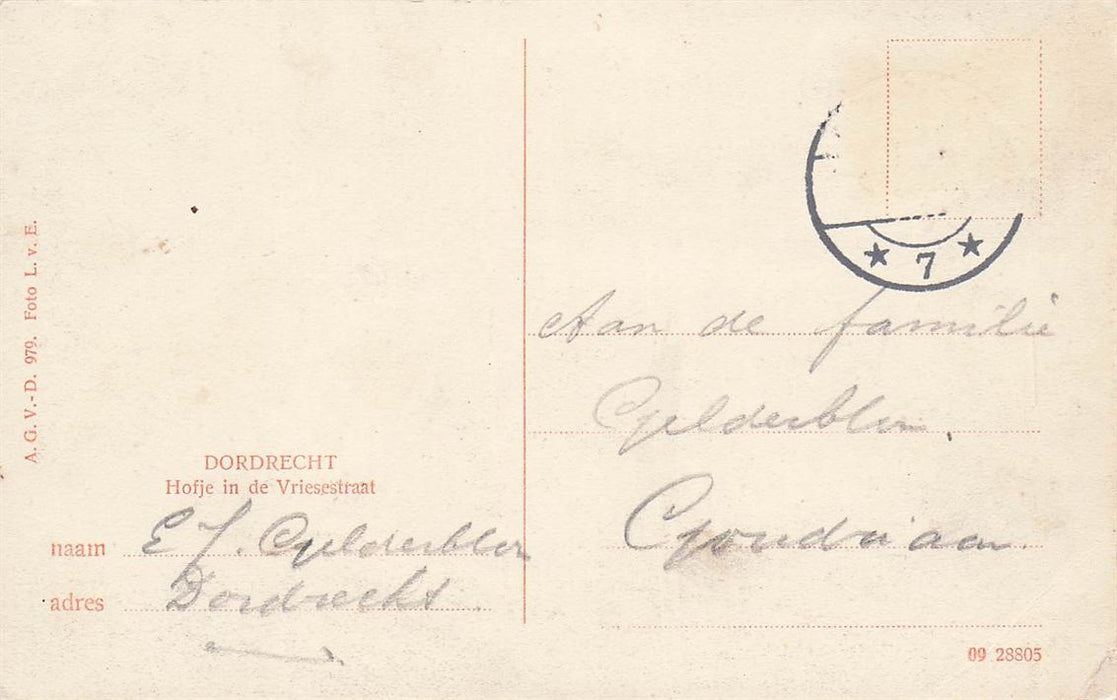 A. G. V.-D. 979. Foto L. v. E.
DORDRECHT
Hofje in de Vriesestraat
naam E J. Gelderblom
adres Dordrecht.
★ 7 ★
Aan de familie
Gelderblom.
Goudriaan.
09 28805